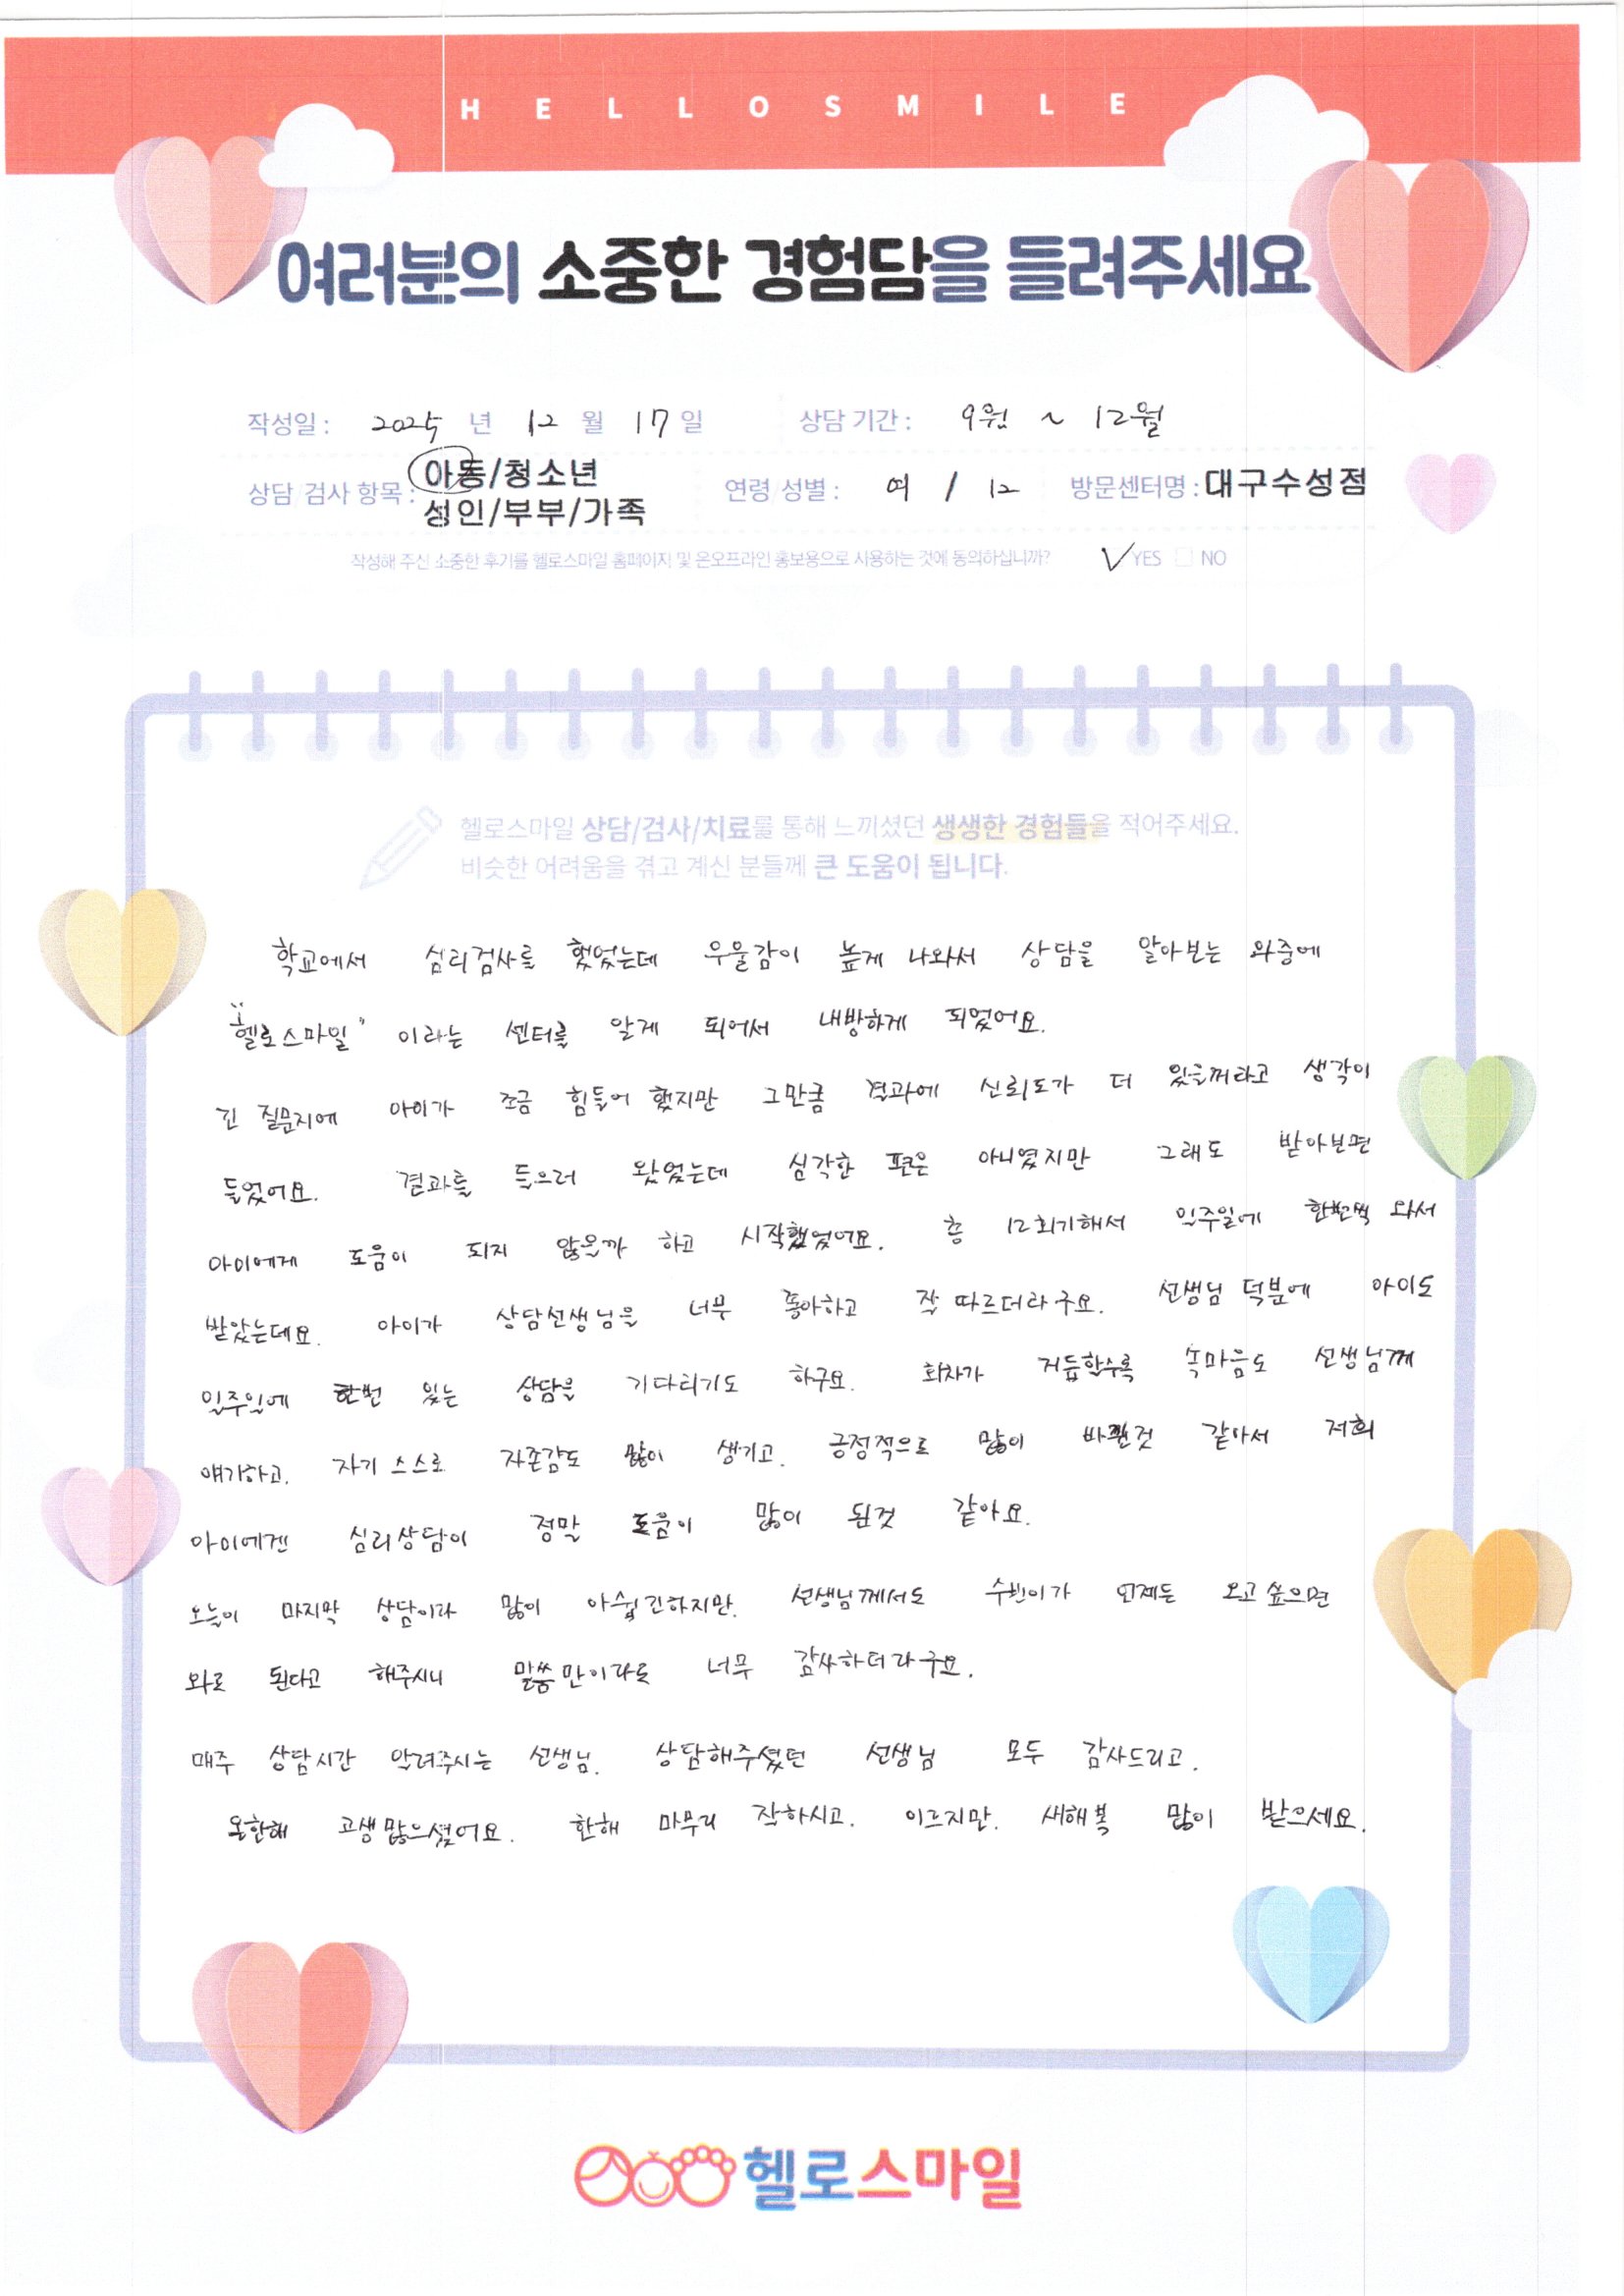 HELLOSMILE
여러분의 소중한 경험담을 들려주세요
작성일 : 2025 년 12 월 17 일 상담 기간 : 9월 ~ 12월
상담/검사 항목 : 아동/청소년
성인/부부/가족
연령/성별 : 여 / 12 방문센터명 : 대구수성점
작성해 주신 소중한 후기를 헬로스마일 홈페이지 및 온오프라인 홍보용으로 사용하는 것에 동의하십니까? YES NO
헬로스마일 상담/검사/치료를 통해 느끼셨던 생생한 경험들을 적어주세요.
비슷한 어려움을 겪고 계신 분들께 큰 도움이 됩니다.
학교에서 심리검사를 했었는데 우울감이 높게 나와서 상담을 알아보는 와중에
"헬로스마일" 이라는 센터를 알게 되어서 내방하게 되었어요.
긴 질문지에 아이가 조금 힘들어 했지만 그만큼 결과에 신뢰도가 더 있을꺼라고 생각이
들었어요. 결과를 들으러 왔었는데 심각한 편은 아니였지만 그래도 받아보면
아이에게 도움이 되지 않을까 하고 시작했었어요. 총 12회기해서 일주일에 한번씩 와서
받았는데요. 아이가 상담선생님을 너무 좋아하고 잘 따르더라구요. 선생님 덕분에 아이도
일주일에 한번 있는 상담을 기다리기도 하구요. 회차가 거듭할수록 속마음도 선생님께
얘기하고. 자기 스스로 자존감도 많이 생기고. 긍정적으로 많이 바뀐것 같아서 저희
아이에겐 심리상담이 정말 도움이 많이 된것 같아요.
오늘이 마지막 상담이라 많이 아쉽긴하지만. 선생님께서도 수빈이가 언제든 오고싶으면
와도 된다고 해주시니 말씀만이라도 너무 감사하더라구요.
매주 상담시간 알려주시는 선생님. 상담해주셨던 선생님 모두 감사드리고.
올한해 고생많으셨어요. 한해 마무리 잘하시고. 이르지만. 새해복 많이 받으세요.
헬로스마일